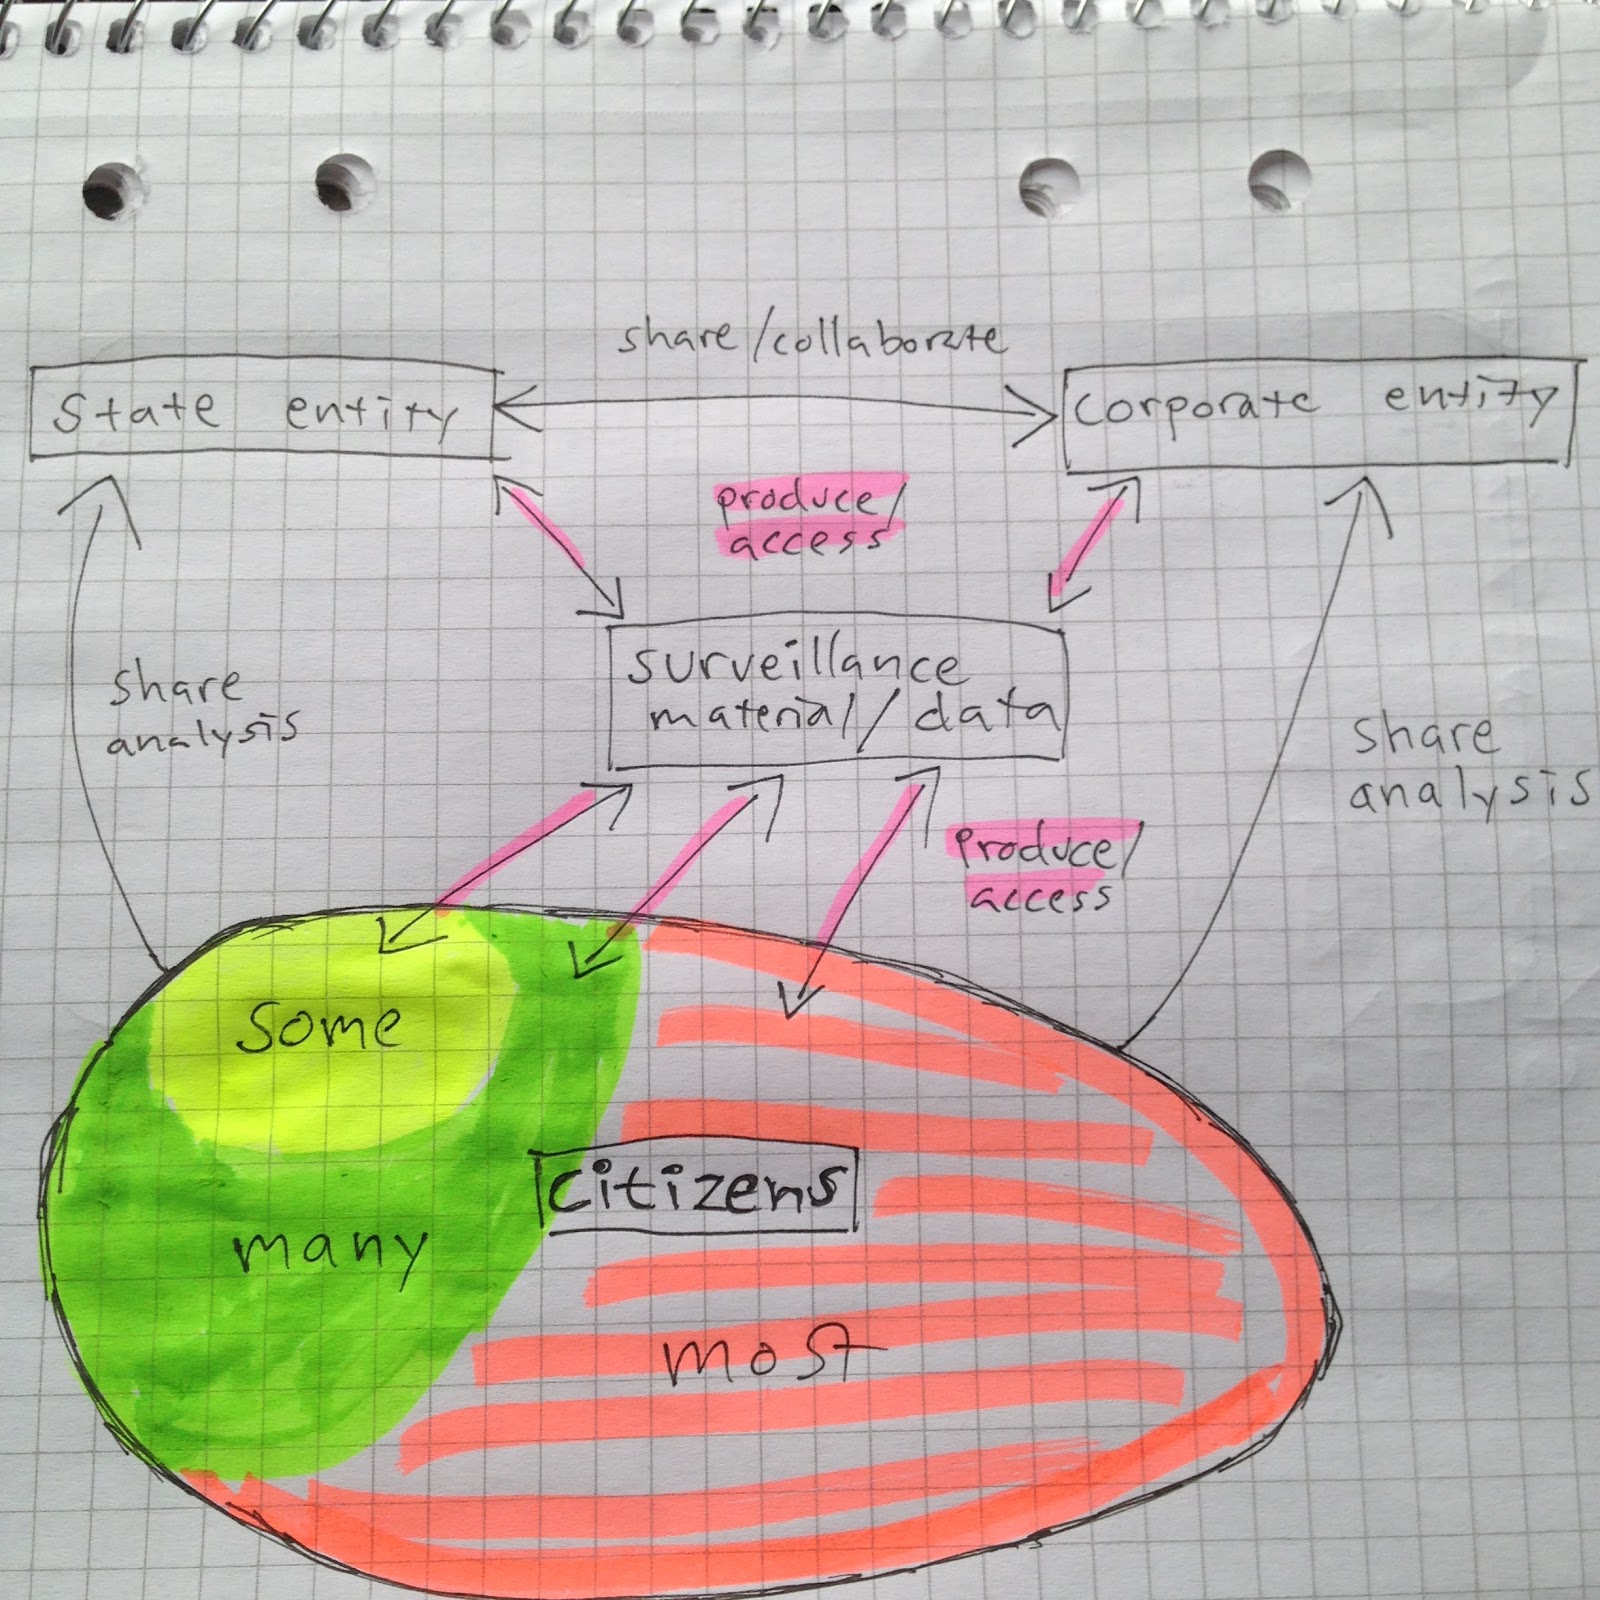 share/collaborate
State entity
corporate entity
produce/
access
surveillance
material/data
share
analysis
share
analysis
produce/
access
some
citizens
many
most